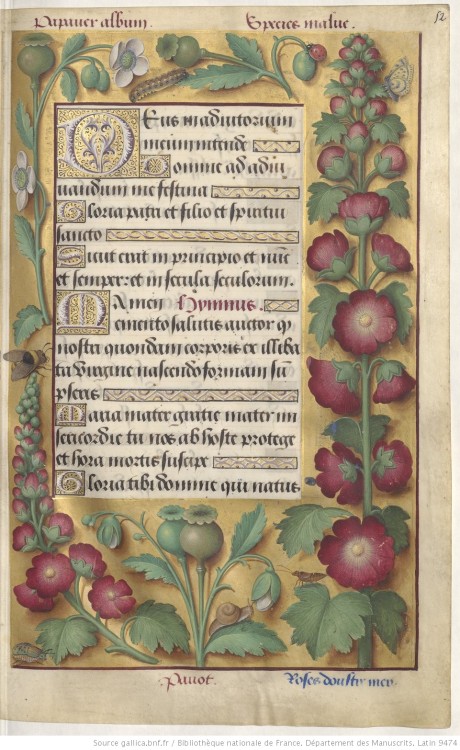 Papauer album.
Species malue.
52
Deus in adiutorium
meum intende
Domine ad adiu
uandum me festina
Gloria patri et filio et spiritui
sancto
Sicut erat in principio et nūc
et semper: et in secula seculorum.
Amen Hymnus.
Memento salutis auctor q
nostra quondam corporis ex illiba
ta uirgine nascendo formam sū
pseris
Maria mater gratie mater mi
sericordie tu nos ab hoste protege
et hora mortis suscipe
Gloria tibi domine qui natus
Pauot.
Roses doultre mer.
Source gallica.bnf.fr / Bibliothèque nationale de France, Département des Manuscrits, Latin 9474